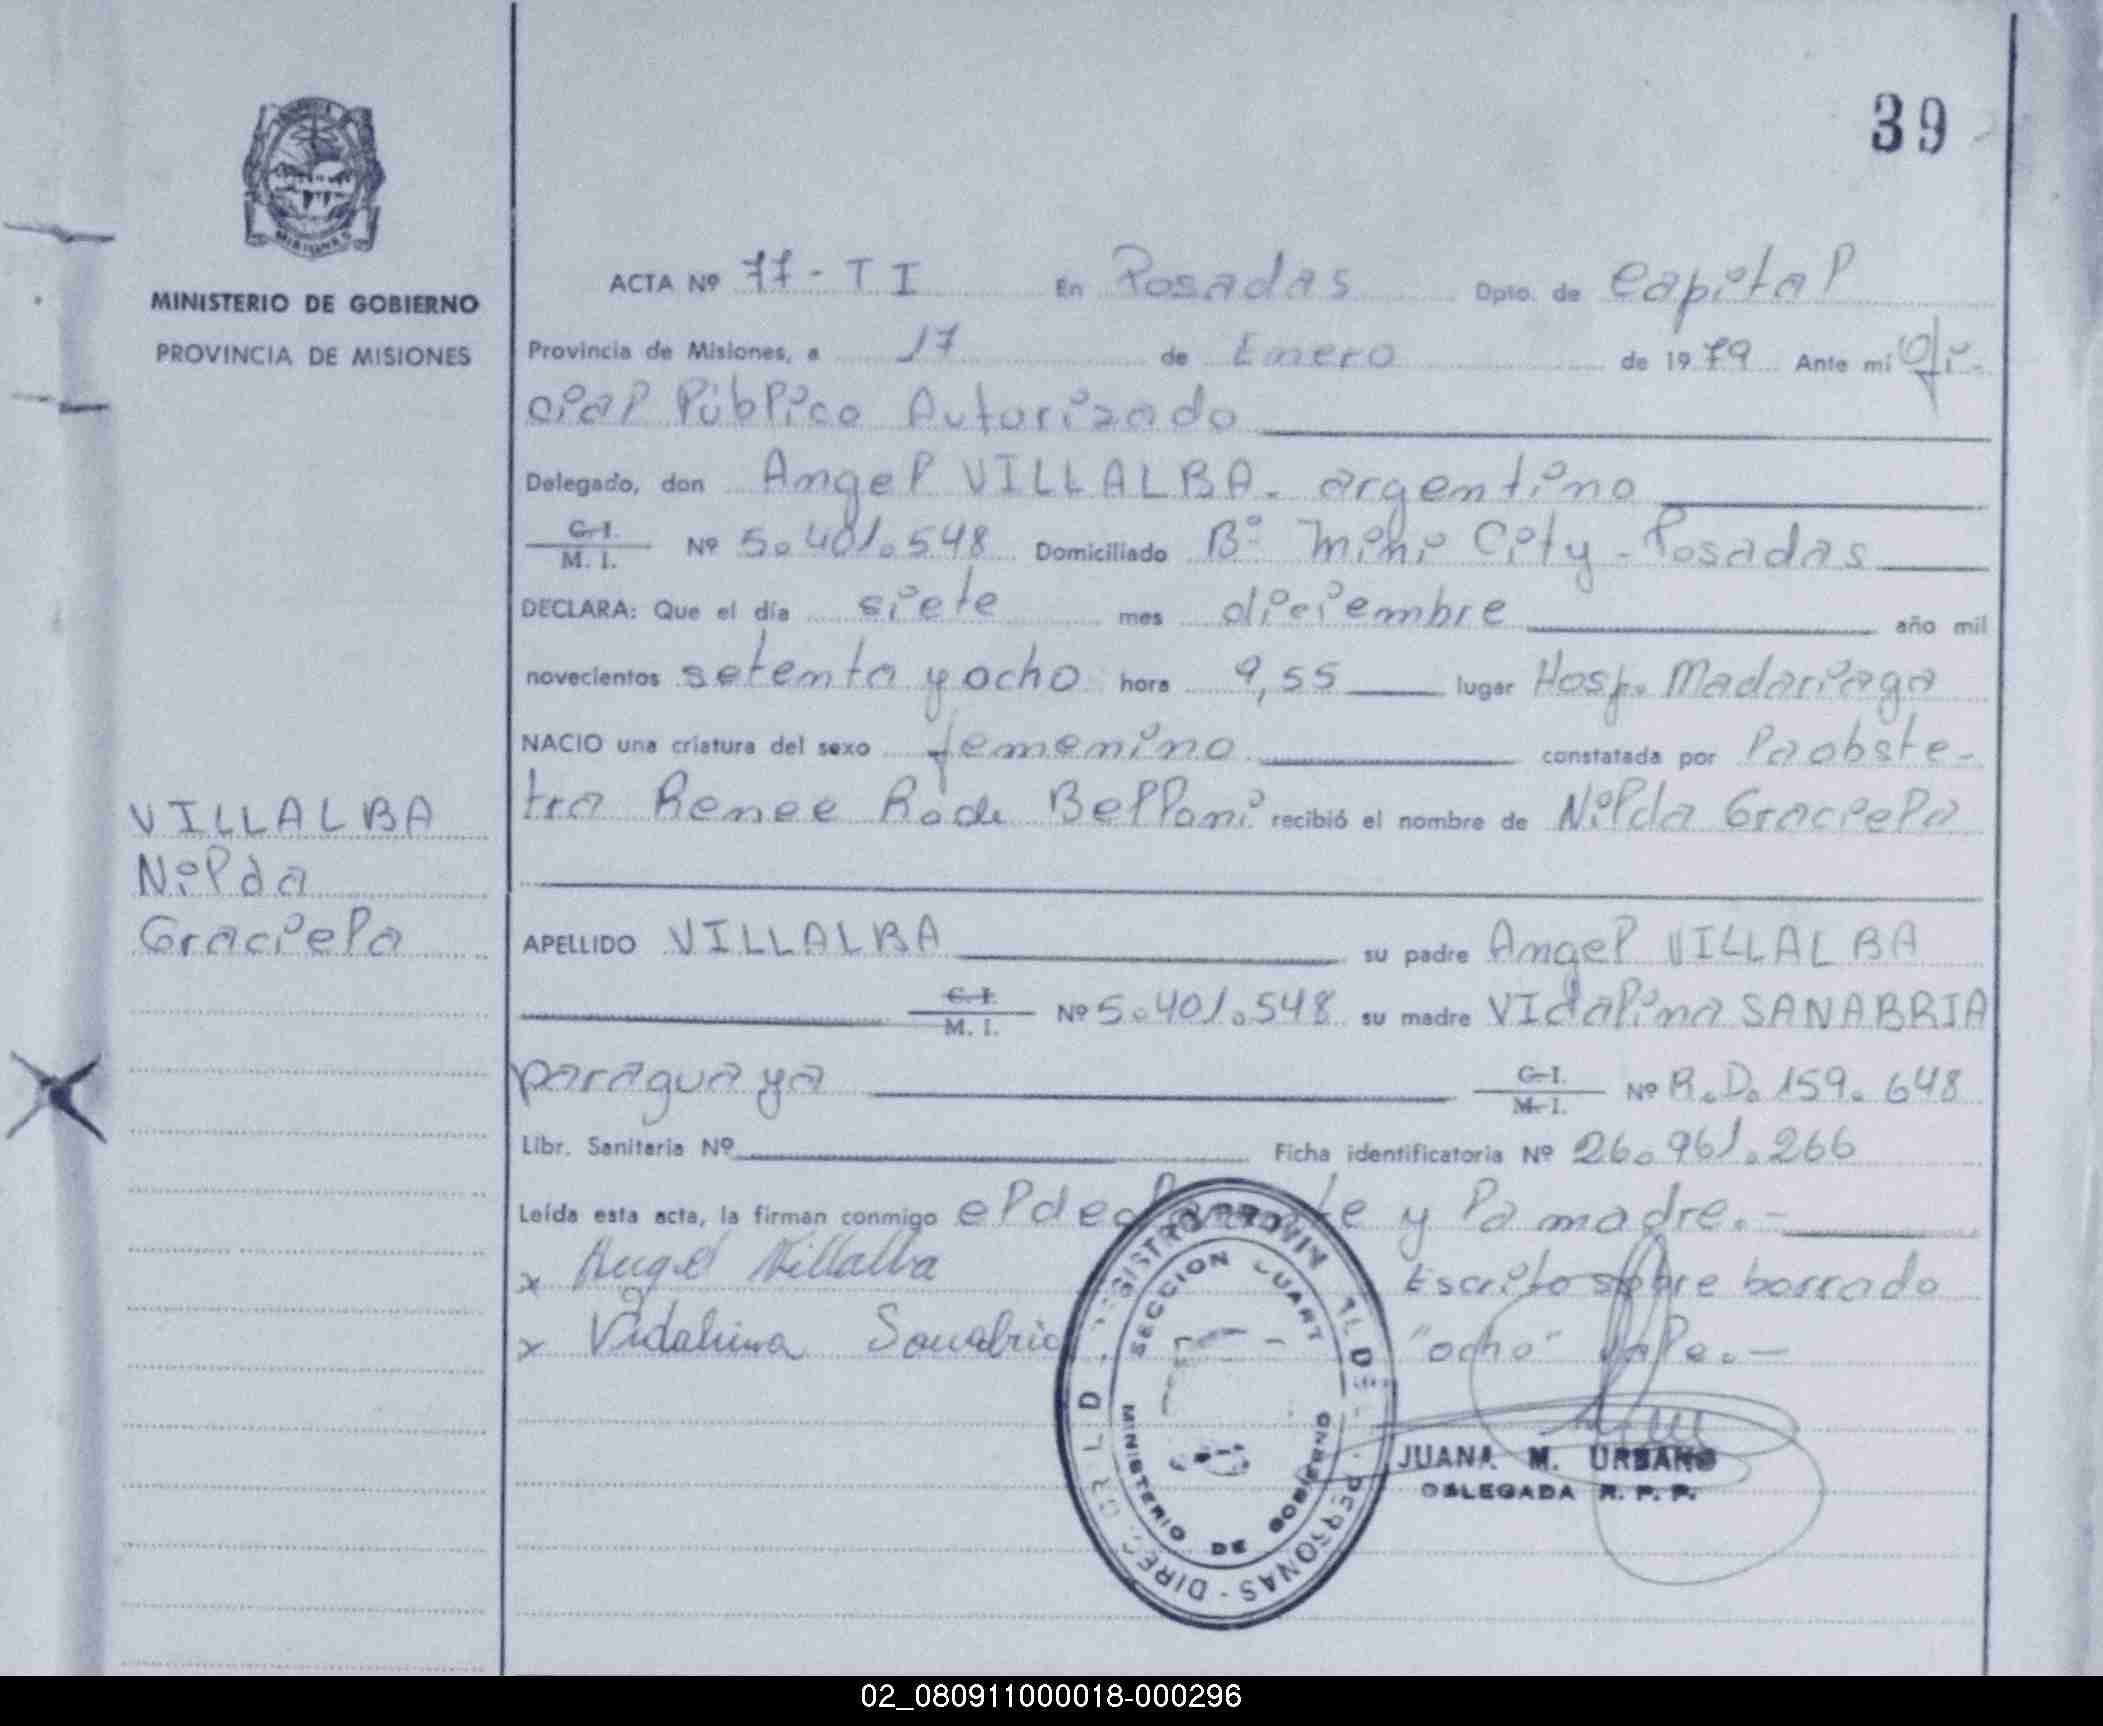 39
MINISTERIO DE GOBIERNO
PROVINCIA DE MISIONES
ACTA Nº 77-TI En Posadas Dpto. de Capital
Provincia de Misiones, a 17 de Enero de 1979 Ante mí Ofi-
cial Público Autorizado
Delegado, don Angel VILLALBA. argentino
C. I.
M. I. Nº 5.401.548 Domiciliado Bº Mini City - Posadas
DECLARA: Que el día siete mes diciembre año mil
novecientos setenta y ocho hora 9,55 lugar Hosp. Madariaga
NACIO una criatura del sexo femenino constatada por la obste-
tra Renee Bellani recibió el nombre de Nilda Graciela
VILLALBA
Nilda
Graciela
APELLIDO VILLALBA su padre Angel VILLALBA
C. I.
M. I. Nº 5.401.548 su madre VIdalina SANABRIA
paraguaya C. I. M. I. Nº R.D. 159.648
Libr. Sanitaria Nº Ficha identificatoria Nº 26.961.266
Leída esta acta, la firman conmigo el declarante y la madre.-
x Angel Villalba Escrito sobre borrado
x Vidalina Sanabria "ocho" Vale.-
SECCION CUART
MINISTERIO DE GOBIERNO
PERSONAS
JUANA M. URBANO
DELEGADA R. P. P.
02_080911000018-000296